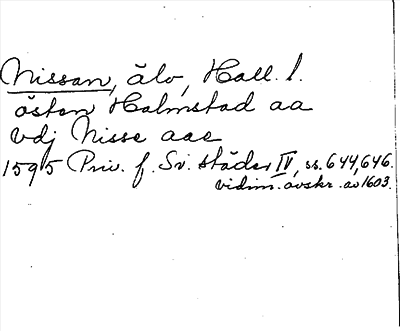 Nissan, älv, Hall. l.
östen Halmstad aa
vdj Nisse aae
1595 Priv. f. Sv. städer IV, ss. 644, 646.
vidim. avskr. av 1603.